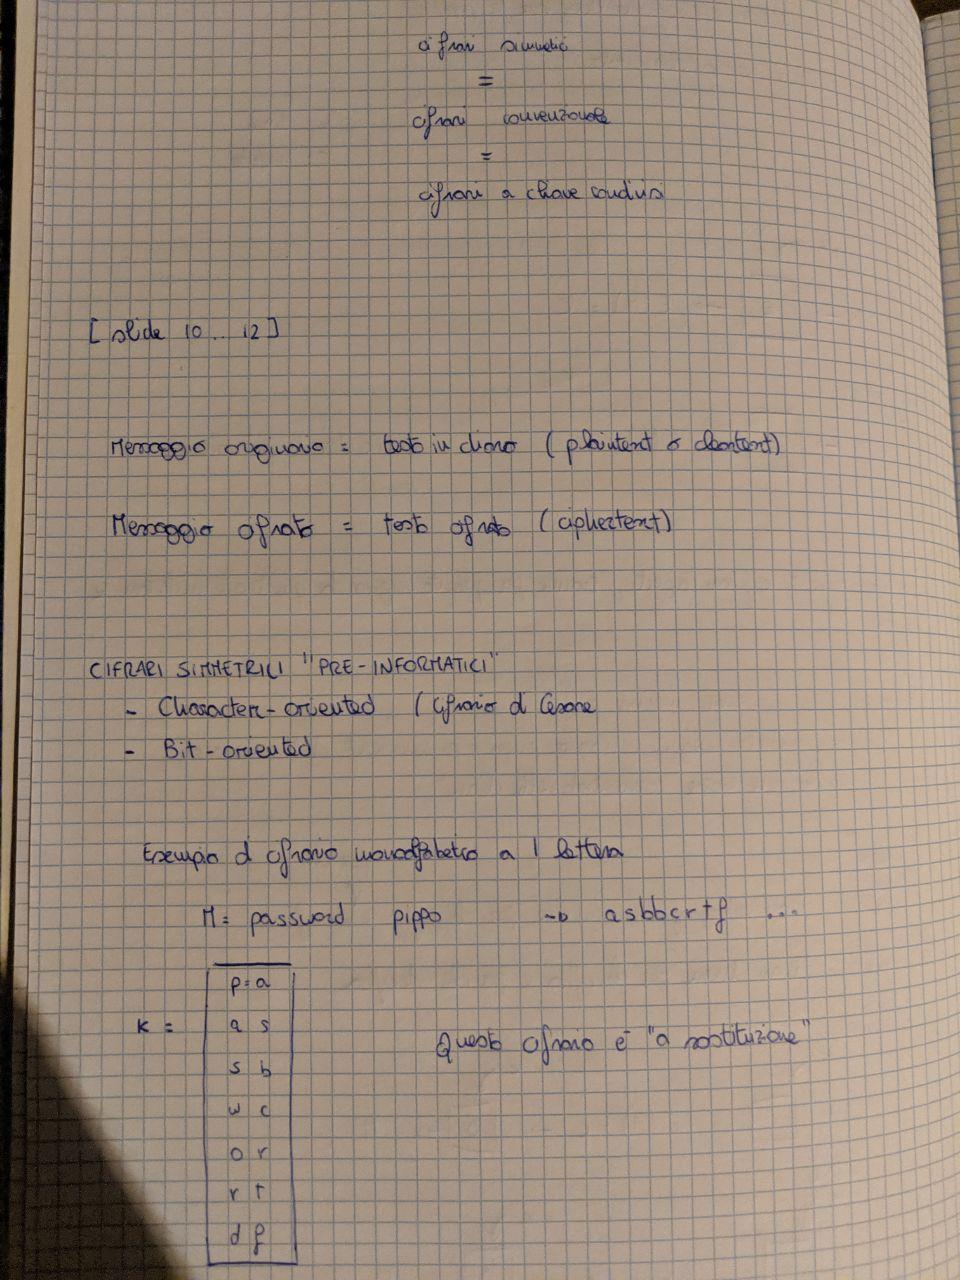 cifrari simmetrici
=
cifrari convenzionale
=
cifrari a chiave condivisi
[slide 10 ... 12]
Messaggio originario = testo in chiaro (plaintext o cleartext)
Messaggio cifrato = testo cifrato (ciphertext)
CIFRARI SIMMETRICI "PRE-INFORMATICI"
- Character-oriented (Cifrario di Cesare
- Bit-oriented
Esempio di cifrario monoalfabetico a 1 lettera
M= password pippo → asbbcrtf ...
K =
p=a
a s
s b
w c
o r
r t
d f
Questo cifrario è "a sostituzione"